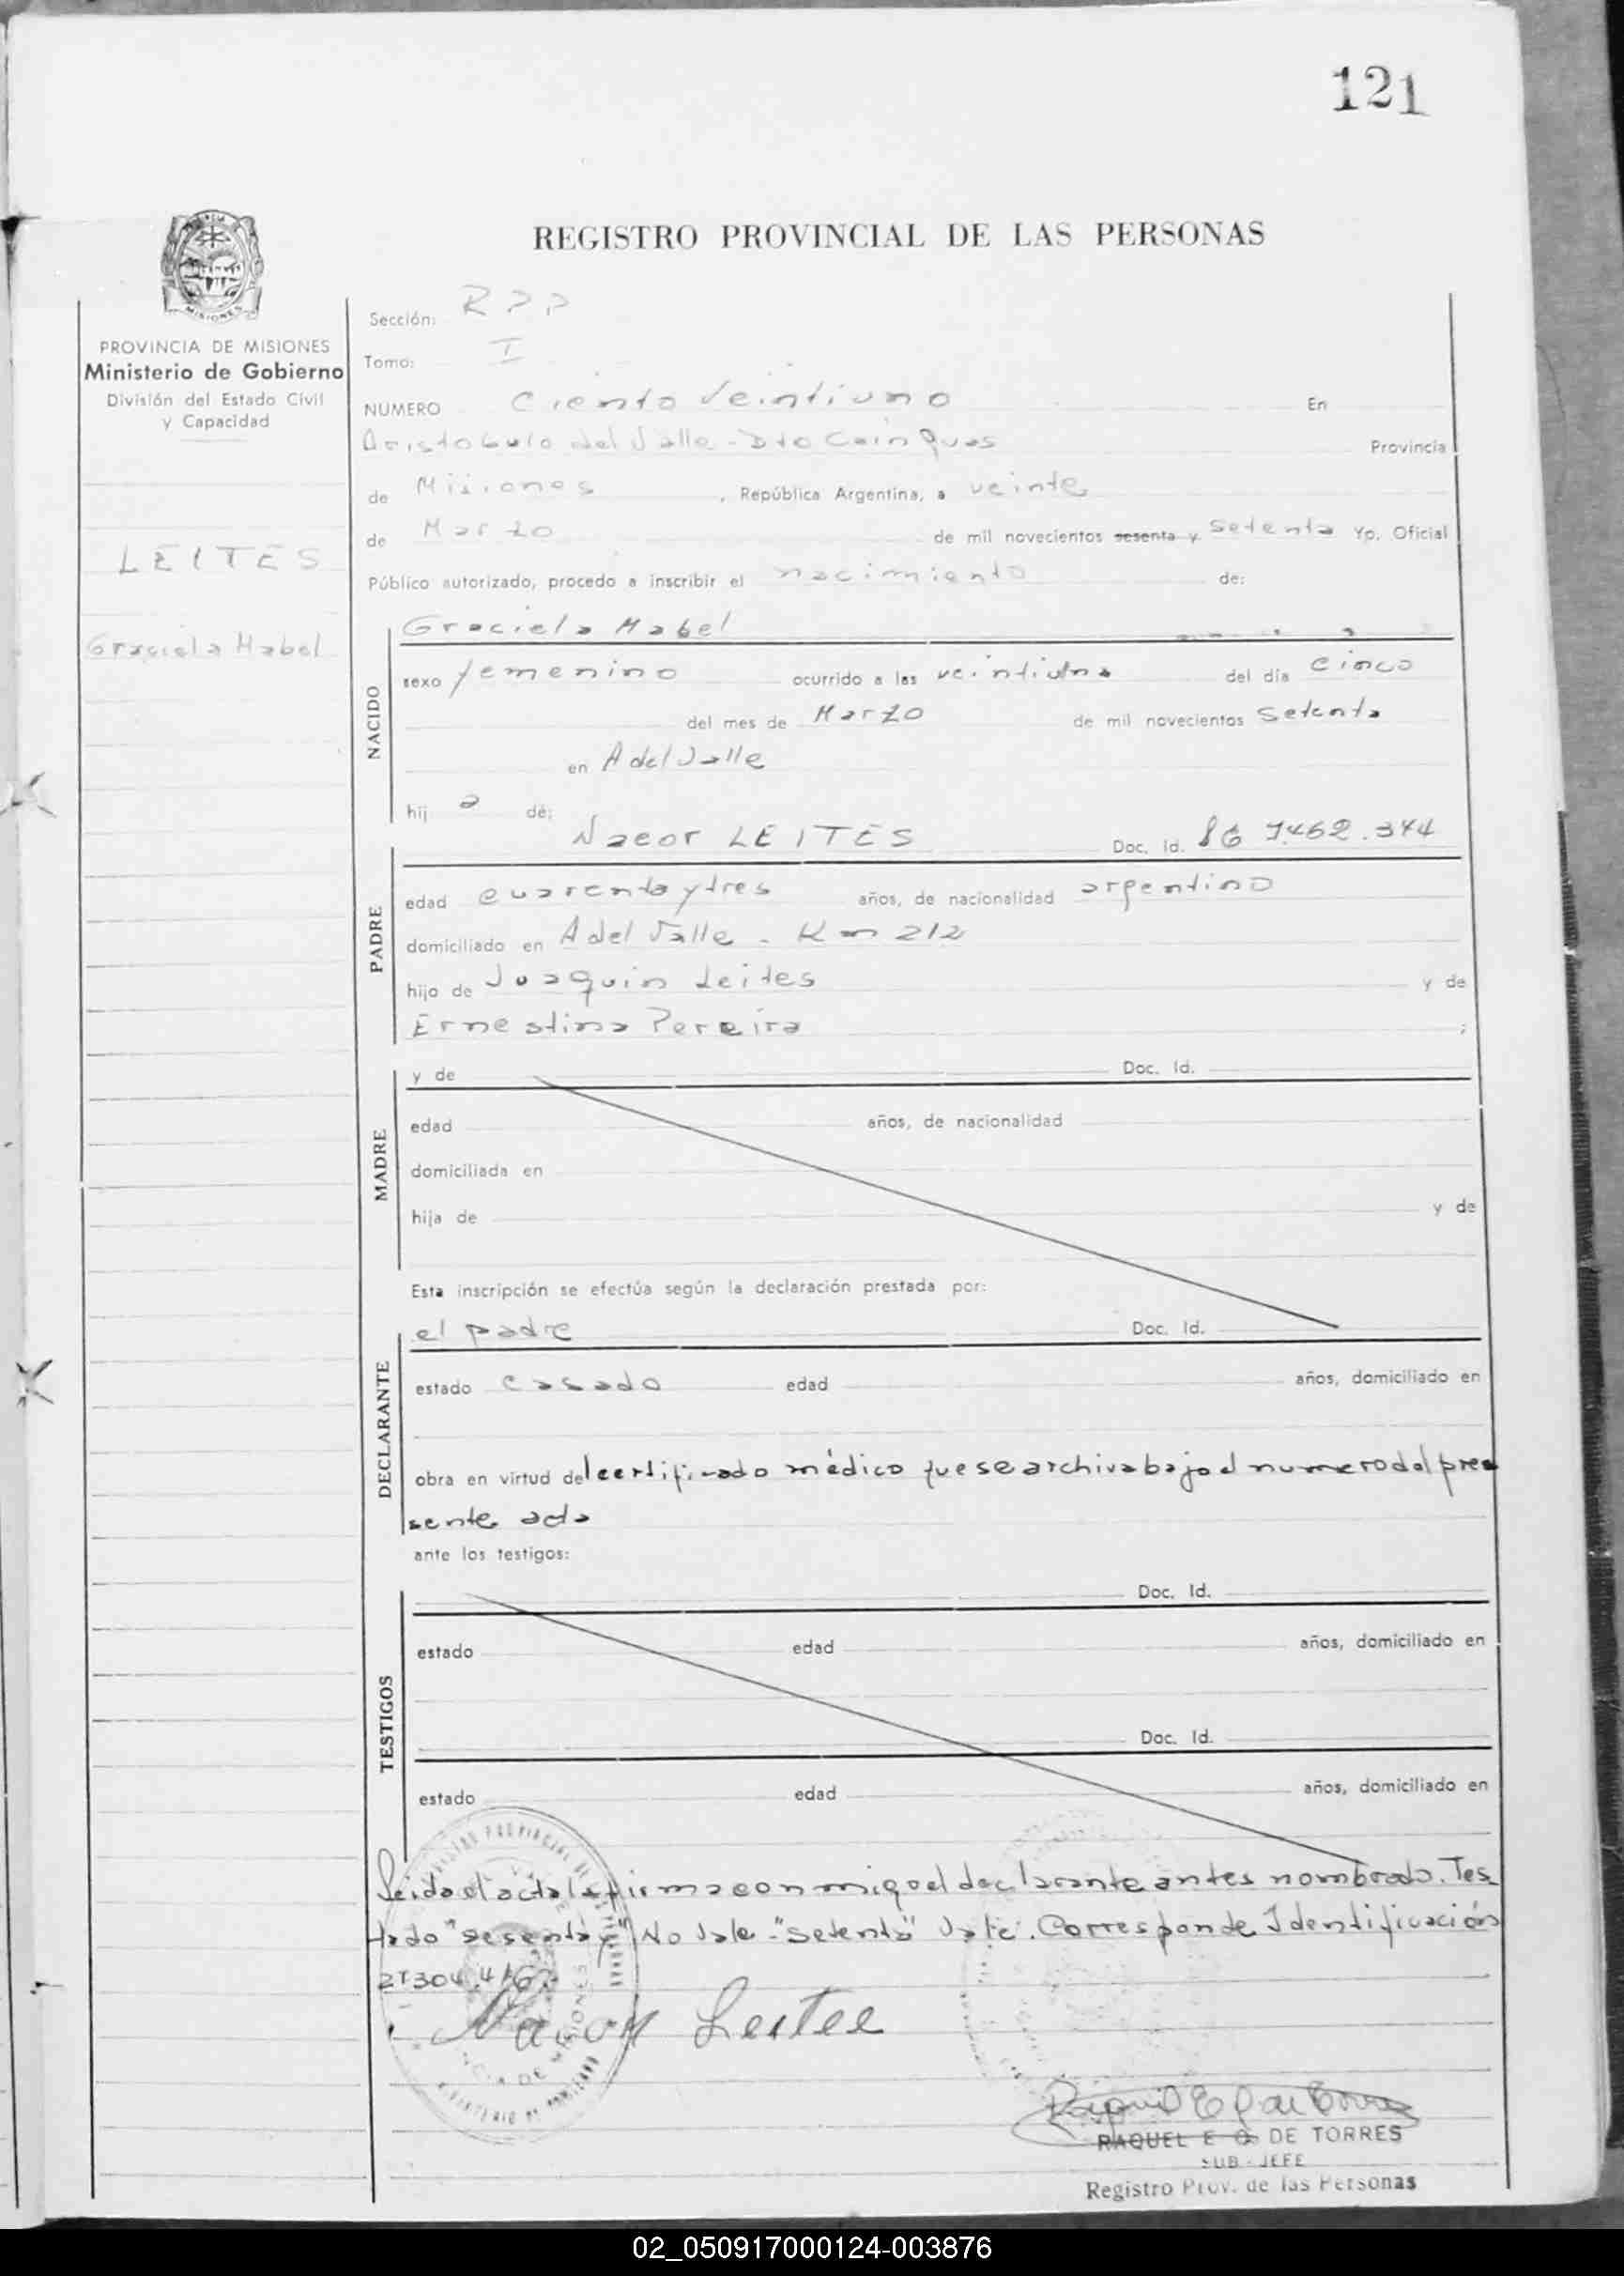 121
REGISTRO PROVINCIAL DE LAS PERSONAS
MISIONES
PROVINCIA DE MISIONES
Ministerio de Gobierno
División del Estado Civil
y Capacidad
LEITES
Graciela Mabel
Sección: RPP
Tomo: I
NUMERO Ciento Veintiuno En
Aristobulo del Valle - Dto Cainguas Provincia
de Misiones, República Argentina, a veinte
de Marzo de mil novecientos sesenta y setenta Yo, Oficial
Público autorizado, procedo a inscribir el nacimiento de:
NACIDO
Graciela Mabel
sexo femenino ocurrido a las veintiuna del día cinco
del mes de Marzo de mil novecientos setenta
en A del Valle
hij a de:
PADRE
Naeor LEITES Doc. Id. 7.462.344
edad cuarenta y tres años, de nacionalidad argentino
domiciliado en A del Valle - Km 212
hijo de Joaquin Leites y de
Ernestina Pereira ;
MADRE
y de Doc. Id.
edad años, de nacionalidad
domiciliada en
hija de y de
Esta inscripción se efectúa según la declaración prestada por:
DECLARANTE
el padre Doc. Id.
estado casado edad años, domiciliado en
obra en virtud del certificado médico que se archiva bajo el numero del pre
sente acta
ante los testigos:
TESTIGOS
Doc. Id.
estado edad años, domiciliado en
Doc. Id.
estado edad años, domiciliado en
Leida el acta la firma conmigo el declarante antes nombrado. Tes
tado "sesenta y" No Vale - "setenta" Vale. Corresponde Identificación
21304.416
Leites
RAQUEL E. G. DE TORRES
SUB-JEFE
Registro Prov. de las Personas
02_050917000124-003876